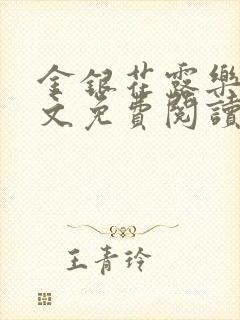 金銀花露樂
文免費閱讀
王青玲